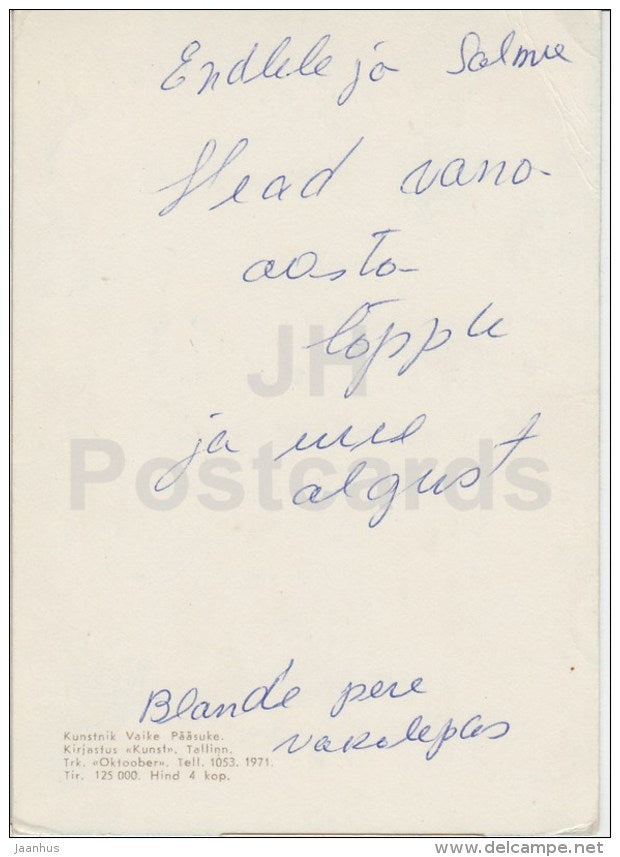 Endlile ja Salme
Head vana-
aasta
lõppu
ja uue
algust
Blande pere
Vakalepas
Kunstnik Vaike Pääsuke.
Kirjastus «Kunst». Tallinn.
Trk. «Oktoober». Tell. 1053. 1971.
Tir. 125 000. Hind 4 kop.
JH
Postcards
jaanhus
www.delcampe.net